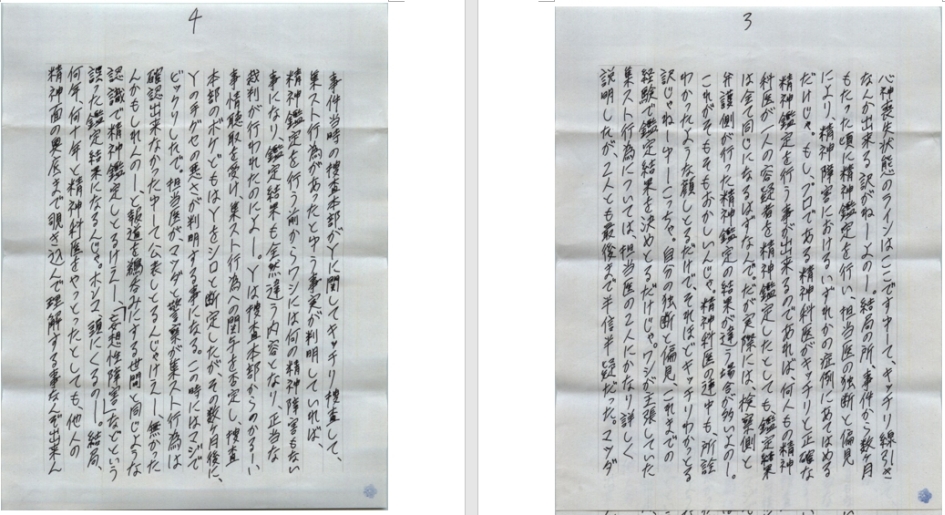 3
心神喪失状態のラインはここですゆーて、キッチリ線引き
なんか出来る訳がねーよのー。結局の所、事件から数ヶ月
もたった頃に精神鑑定を行い、担当医の独断と偏見
により、精神障害におけるいずれかの症例にあてはめる
だけじゃ。もし、プロである精神科医がキッチリと正確な
精神鑑定を行う事が出来るのであれば何人もの精神
科医が一人の容疑者を精神鑑定したとしても、鑑定結果
は全て同じになるはずなんで。だが実際には、検察側と
弁護側が行った精神鑑定の結果が違う場合が多いよのー。
これがそもそもおかしいんじゃ。精神科医の連中も所詮
わかったような顔しとるだけで、それほどキッチリわかっとる
訳じゃねーゆーこっちゃ。自分の独断と偏見、これまでの
経験で鑑定結果を決めとるだけじゃ。ワシが主張していた
集スト行為については、担当医の2人にかなり詳しく
説明したが、2人とも最後まで半信半疑だった。マツダ
4
事件当時の捜査本部がYに関してキッチリ捜査して、
集スト行為があったとゆう事実が判明していれば、
精神鑑定を行う前からワシには何の精神障害もない
事になり、鑑定結果も全然違う内容となり、正当な
裁判が行われたのによー。Yは捜査本部からのかるーい
事情聴取を受け、集スト行為への関与を否定し、捜査
本部のボケどもはYをシロと断定したがその数ヶ月後に、
Yのテグセの悪さが判明する事になる。この時にはマジで
ビックリしたで。担当医が、マツダと警察が集スト行為は
確認出来なかったゆーて公表しとるんじゃけえー無かった
んかもしれんのーと報道を鵜呑みにする世間と同じような
認識で精神鑑定しとるけえー、「妄想性障害」などという
誤った鑑定結果になるんじゃ。ホンマ頭にくるのー。結局、
何年、何十年と精神科医をやっとったとしても、他人の
精神面の奥底まで覗き込んで理解する事なんぞ出来ん